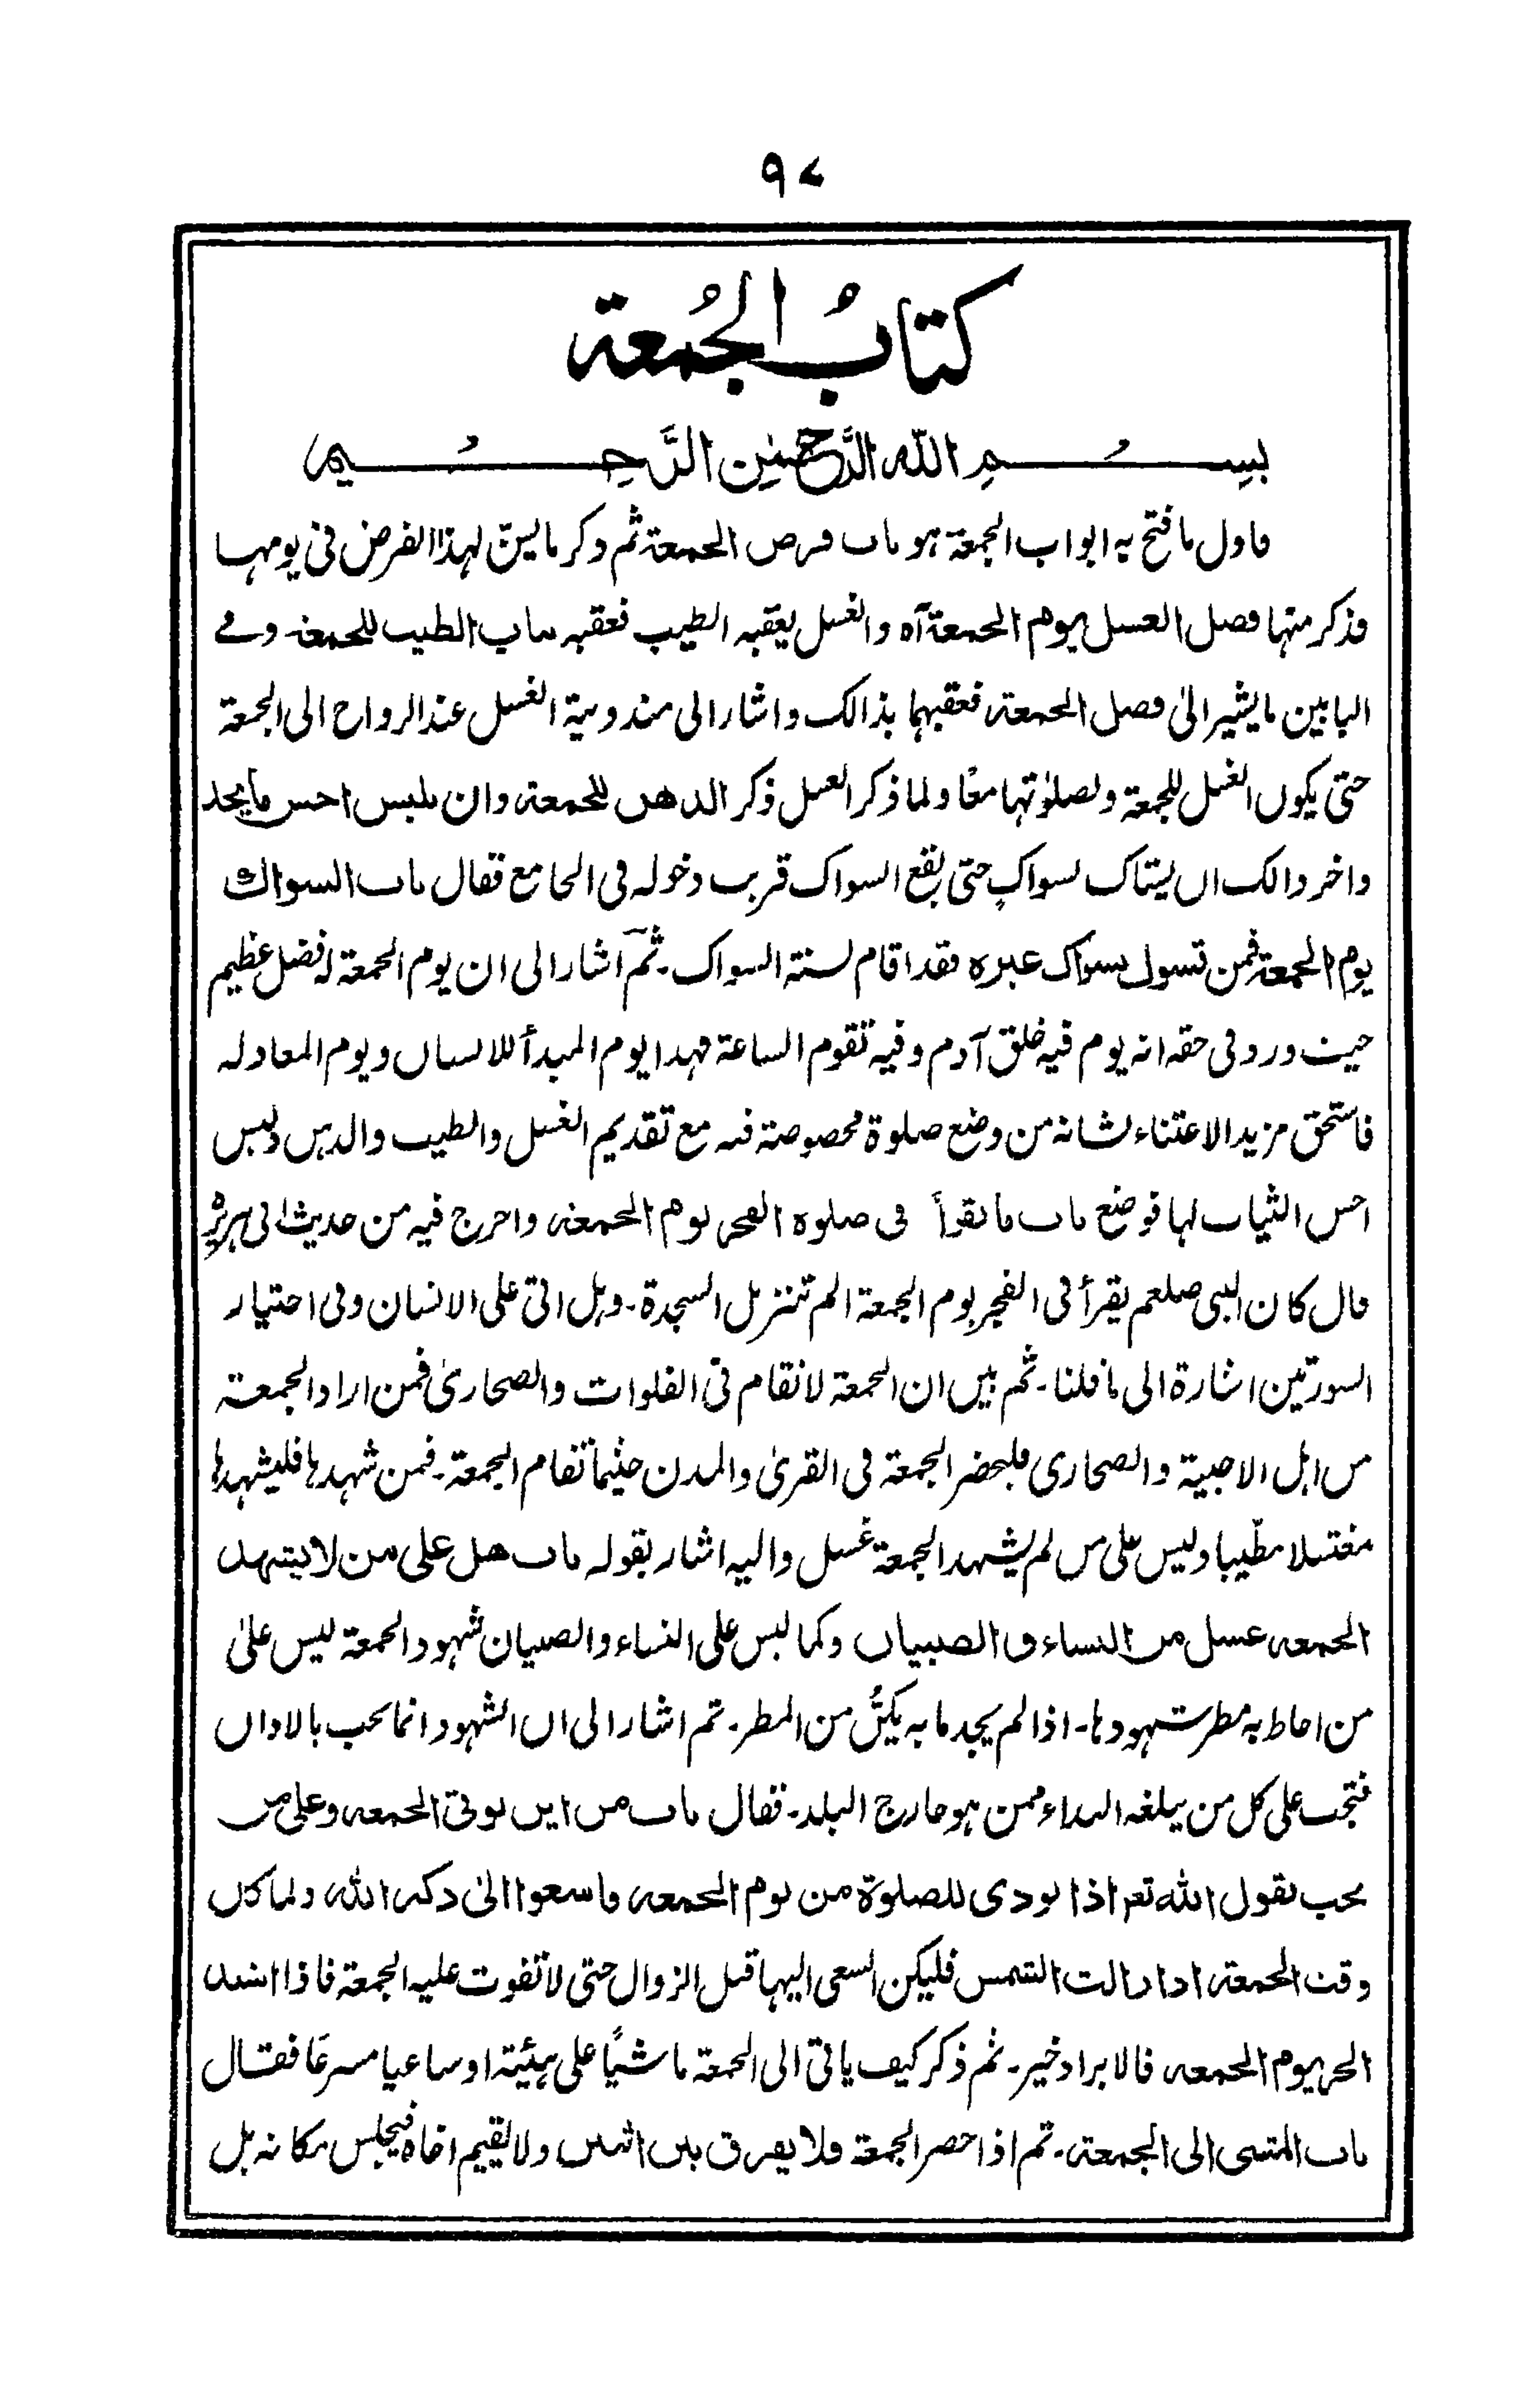 ٩٧
كتابُ الجُمعة
بِسْمِ اللّٰهِ الرَّحْمٰنِ الرَّحِيْمِ
فاول ما فتح به ابواب الجمعة هو باب فرض الجمعة ثم ذكر ما ليسنّ لهذا الفرض فی يومها
فذكر منها فضل الغسل يوم الجمعة آه والغسل يعقبه الطيب فعقبه بباب الطيب للجمعة وفے
البابين ما يشير الیٰ فضل الجمعة فعقبهما بذالك واشار الی مندوبية الغسل عند الرواح الی الجمعة
حتی يكون الغسل للجمعة ولصلوٰتها معًا ولما ذكر الغسل ذكر الدهن للجمعة وان يلبس احسن ما يجد
واخر ذالك ان يستاك لسواك حتی يقع السواك قريب دخوله فی الجامع فقال باب السواك
يوم الجمعة فمن تسوك بسواك غيره فقد اقام لسنة السواك۔ ثمّ اشار الی ان يوم الجمعة له فضل عظيم
حيث ورد فی حقه انه يوم فيه خلق آدم وفيه تقوم الساعة فهذا يوم المبدأ للانسان ويوم المعاد له
فاستحق مزيد الاعتناء لشانه من وضع صلوة مخصوصة فيه مع تقديم الغسل والطيب والدهن ولبس
احسن الثياب لها فوضع باب ما يقرأ فی صلوة الفجر يوم الجمعة واخرج فيه من حديث ابی هريرة
قال كان النبی صلعم يقرأ فی الفجر يوم الجمعة الم تنزيل السجدة۔ وهل اتی علی الانسان وفی اختيار
السورتين اشارة الی ما قلنا۔ ثم بين ان الجمعة لا تقام فی الفلوات والصحاریٰ فمن اراد الجمعة
من اهل الاخبية والصحاری فليحضر الجمعة فی القریٰ والمدن حيثما تقام الجمعة۔ فمن شهدها فليشهدها
مغتسلا مطّيبا وليس علی من لم يشهد الجمعة غسل واليه اشار بقوله باب هل علی من لا يشهد
الجمعة غسل من النساء والصبيان وكما ليس علی النساء والصبيان شهود الجمعة ليس علیٰ
من احاط به مطر شهودها۔ اذا لم يجد ما به يكنُّ من المطر۔ ثم اشار الی ان الشهود انما يجب بالاذان
فتجب علی كل من يبلغه النداء ممن هو خارج البلد۔ فقال باب من اين يوتی الجمعة وعلی من
يجب لقول اللّٰه تعر اذا نودی للصلوة من يوم الجمعة فاسعوا الیٰ ذكر اللّٰه ولما كان
وقت الجمعة اذا زالت الشمس فليكن السعی اليها قبل الزوال حتی لا تفوت عليه الجمعة فاذا اشتد
الحر يوم الجمعة فالابراد خير۔ ثم ذكر كيف ياتی الی الجمعة ماشيًا علی هيئته او ساعيا مسرعًا فقال
باب المشی الی الجمعة۔ ثم اذا حضر الجمعة فلا يفرق بين اثنين ولا يقيم اخاه فيجلس مكانه بل